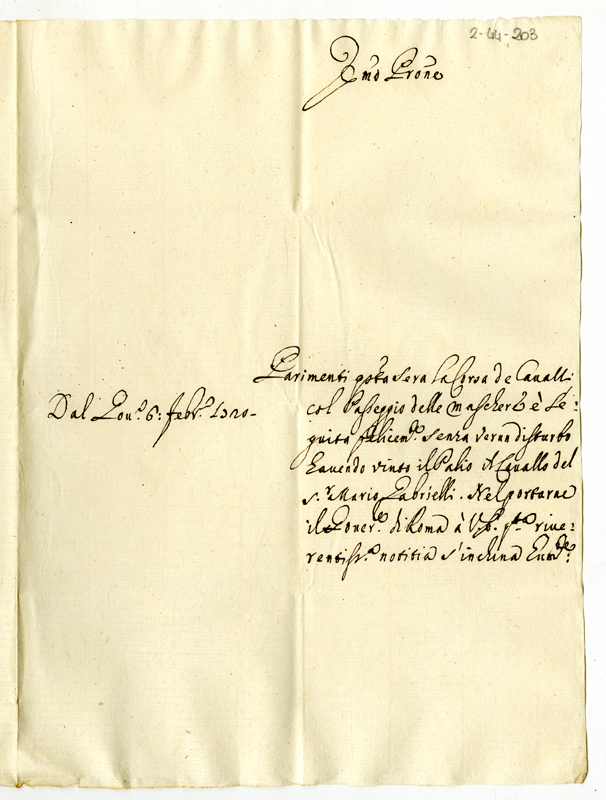 2-44-203
Em̃o Prõne
Parimenti q̃sta sera la Corsa de Cavalli
Dal Gov.º 6: Febr.º 1720-
col Passeggio delle maschere è se:
guita felicem.te senza verun disturbo
havendo vinto il Palio il Cavallo del
S.r Mario Gabrielli. Nel portarne
il Gover.e di Roma à V. q.ta rive:
rentiss.a notitia s'inchina Hum.te: